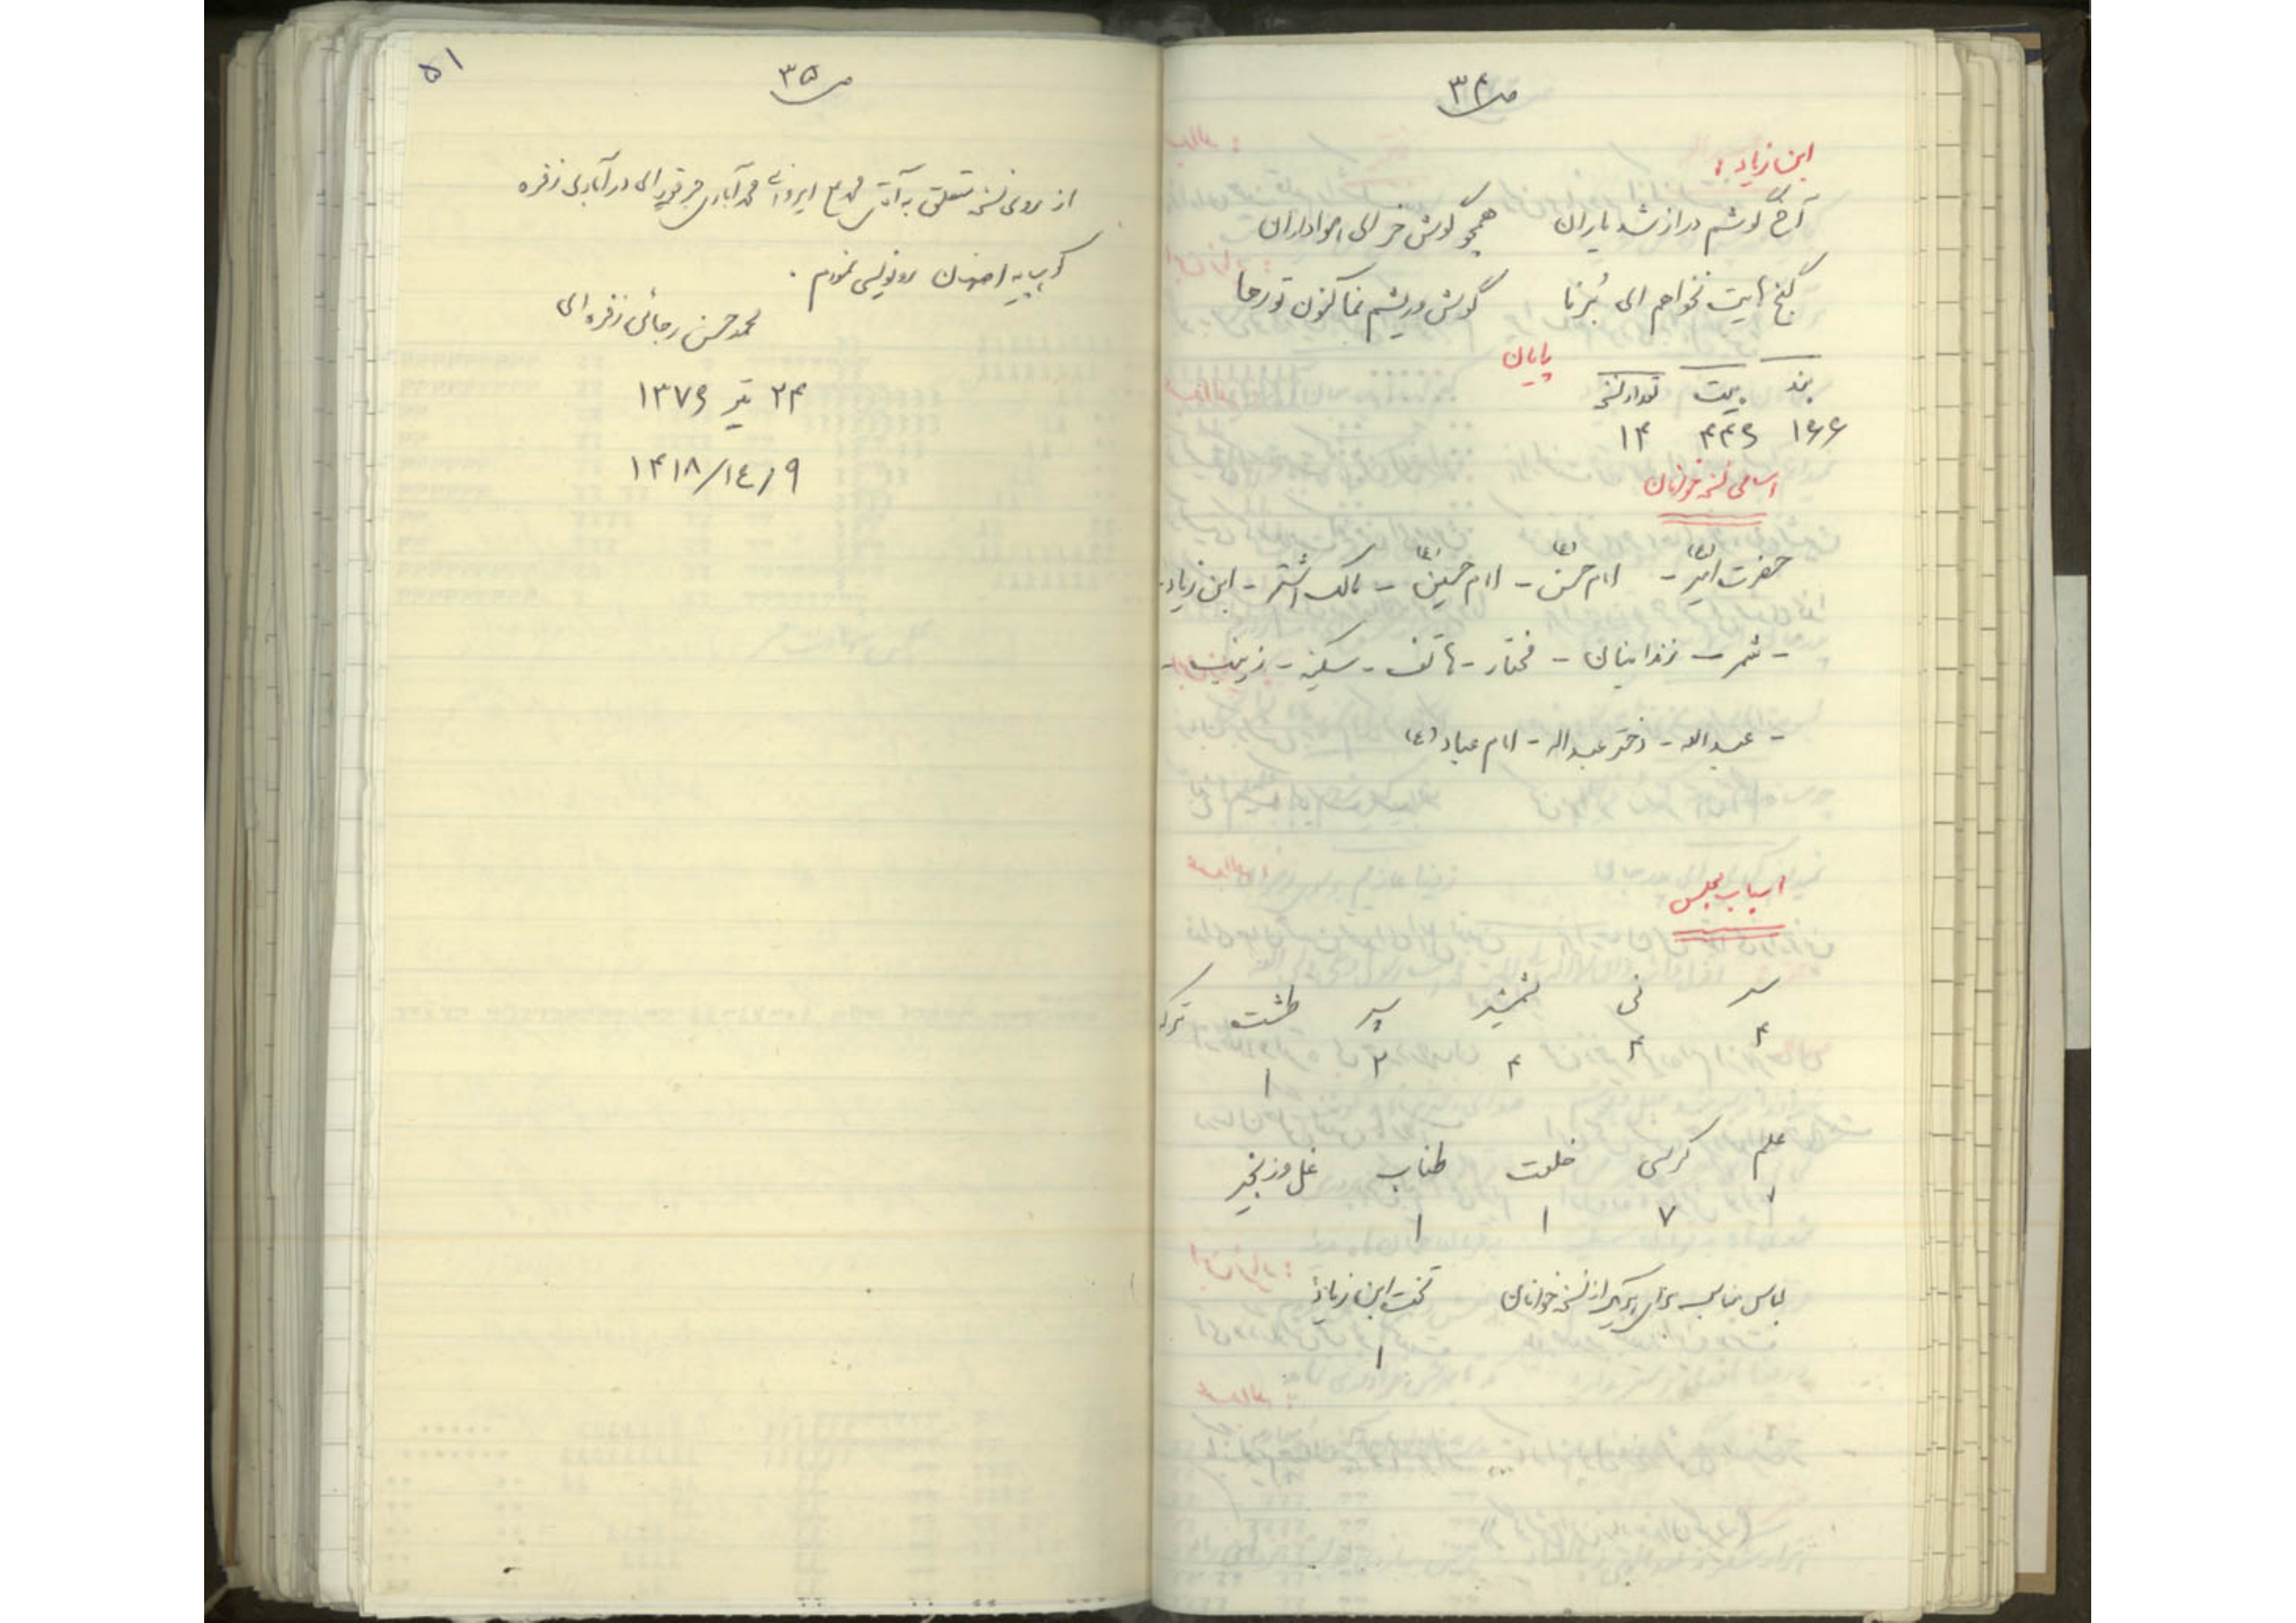 ص ۳۴
ابن زیاد :
آخ گوشم دراز شد یاران همچو گوش خر ای هواداران
گنج هایت نخواهم ای بُرنا گوش و ریشم نما کنون تو رها
پایان
بند بیت تعداد نسخ
۱۶۶ ۴۴۶ ۱۴
اسامی نسخه خوانان
حضرت امیر (ع) - امام حسن (ع) - امام حسین (ع) - مالک اشتر - ابن زیاد -
- شمر - زندانبان - مختار - هاتف - سکینه - زینب -
- عبداله - دختر عبداله - امام عباد (ع)
اسباب مجلس
سر نی شمشیر سپر طشت ترکه
۴ ۴ ۴ ۲ ۱
علم کرسی خلعت طناب غل و زنجیر
۷ ۱ ۱
لباس مناسب برای هر یک از نسخه خوانان تخت ابن زیاد
۱
ص ۳۵
۵۱
از روی نسخه متعلق به آقای محمد آبادی جرقویه ای در آبادی زفره
کوهپایه اصفهان رونویسی نمودم .
محمد حسن رجائی زفره ای
۲۴ تیر ۱۳۷۶
۹ / ۱٤ / ۱۴۱۸